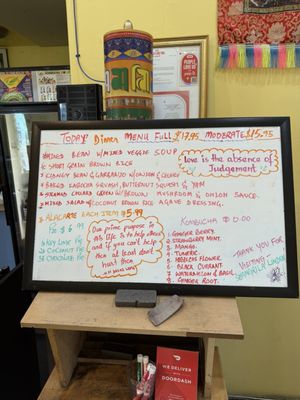 TODAY Dinner MENU FULL $17.95 MODERATE $15.95
MIXED BEAN w/ MIXED VEGGIE SOUP
SHORT GRAIN BROWN RICE
KIDNEY BEAN & GARBANZO w/ ONION & CELERY
BAKED KABOCHA SQUASH, BUTTERNUT SQUASH & YAM
STEAMED COLLARD GREEN w/ BROWN MUSHROOM & ONION SAUCE
MIXED SALAD w/ COCONUT BROWN RICE AGAVE DRESSING
Love is the absence of
Judgement
ALACARTE EACH ITEM $5.99
Pie $6.99
Key Lime Pie
Coconut Pie
Chocolate Pie
Our prime purpose in
this life is to help others
and if you can't help
them at least don't
hurt them
KOMBUCHA
1. GINGER BERRY
2. STRAWBERRY MINT
3. MANGO
4. TUMERIC
5. HIBISCUS FLOWER
6. BLACK CURRANT
7. WATERMELON & BASIL
8. GINGER ROOT
THANK YOU FOR
VISITING
PEOPLE
LOVE US
WE DELIVER
WITH
DOORDASH